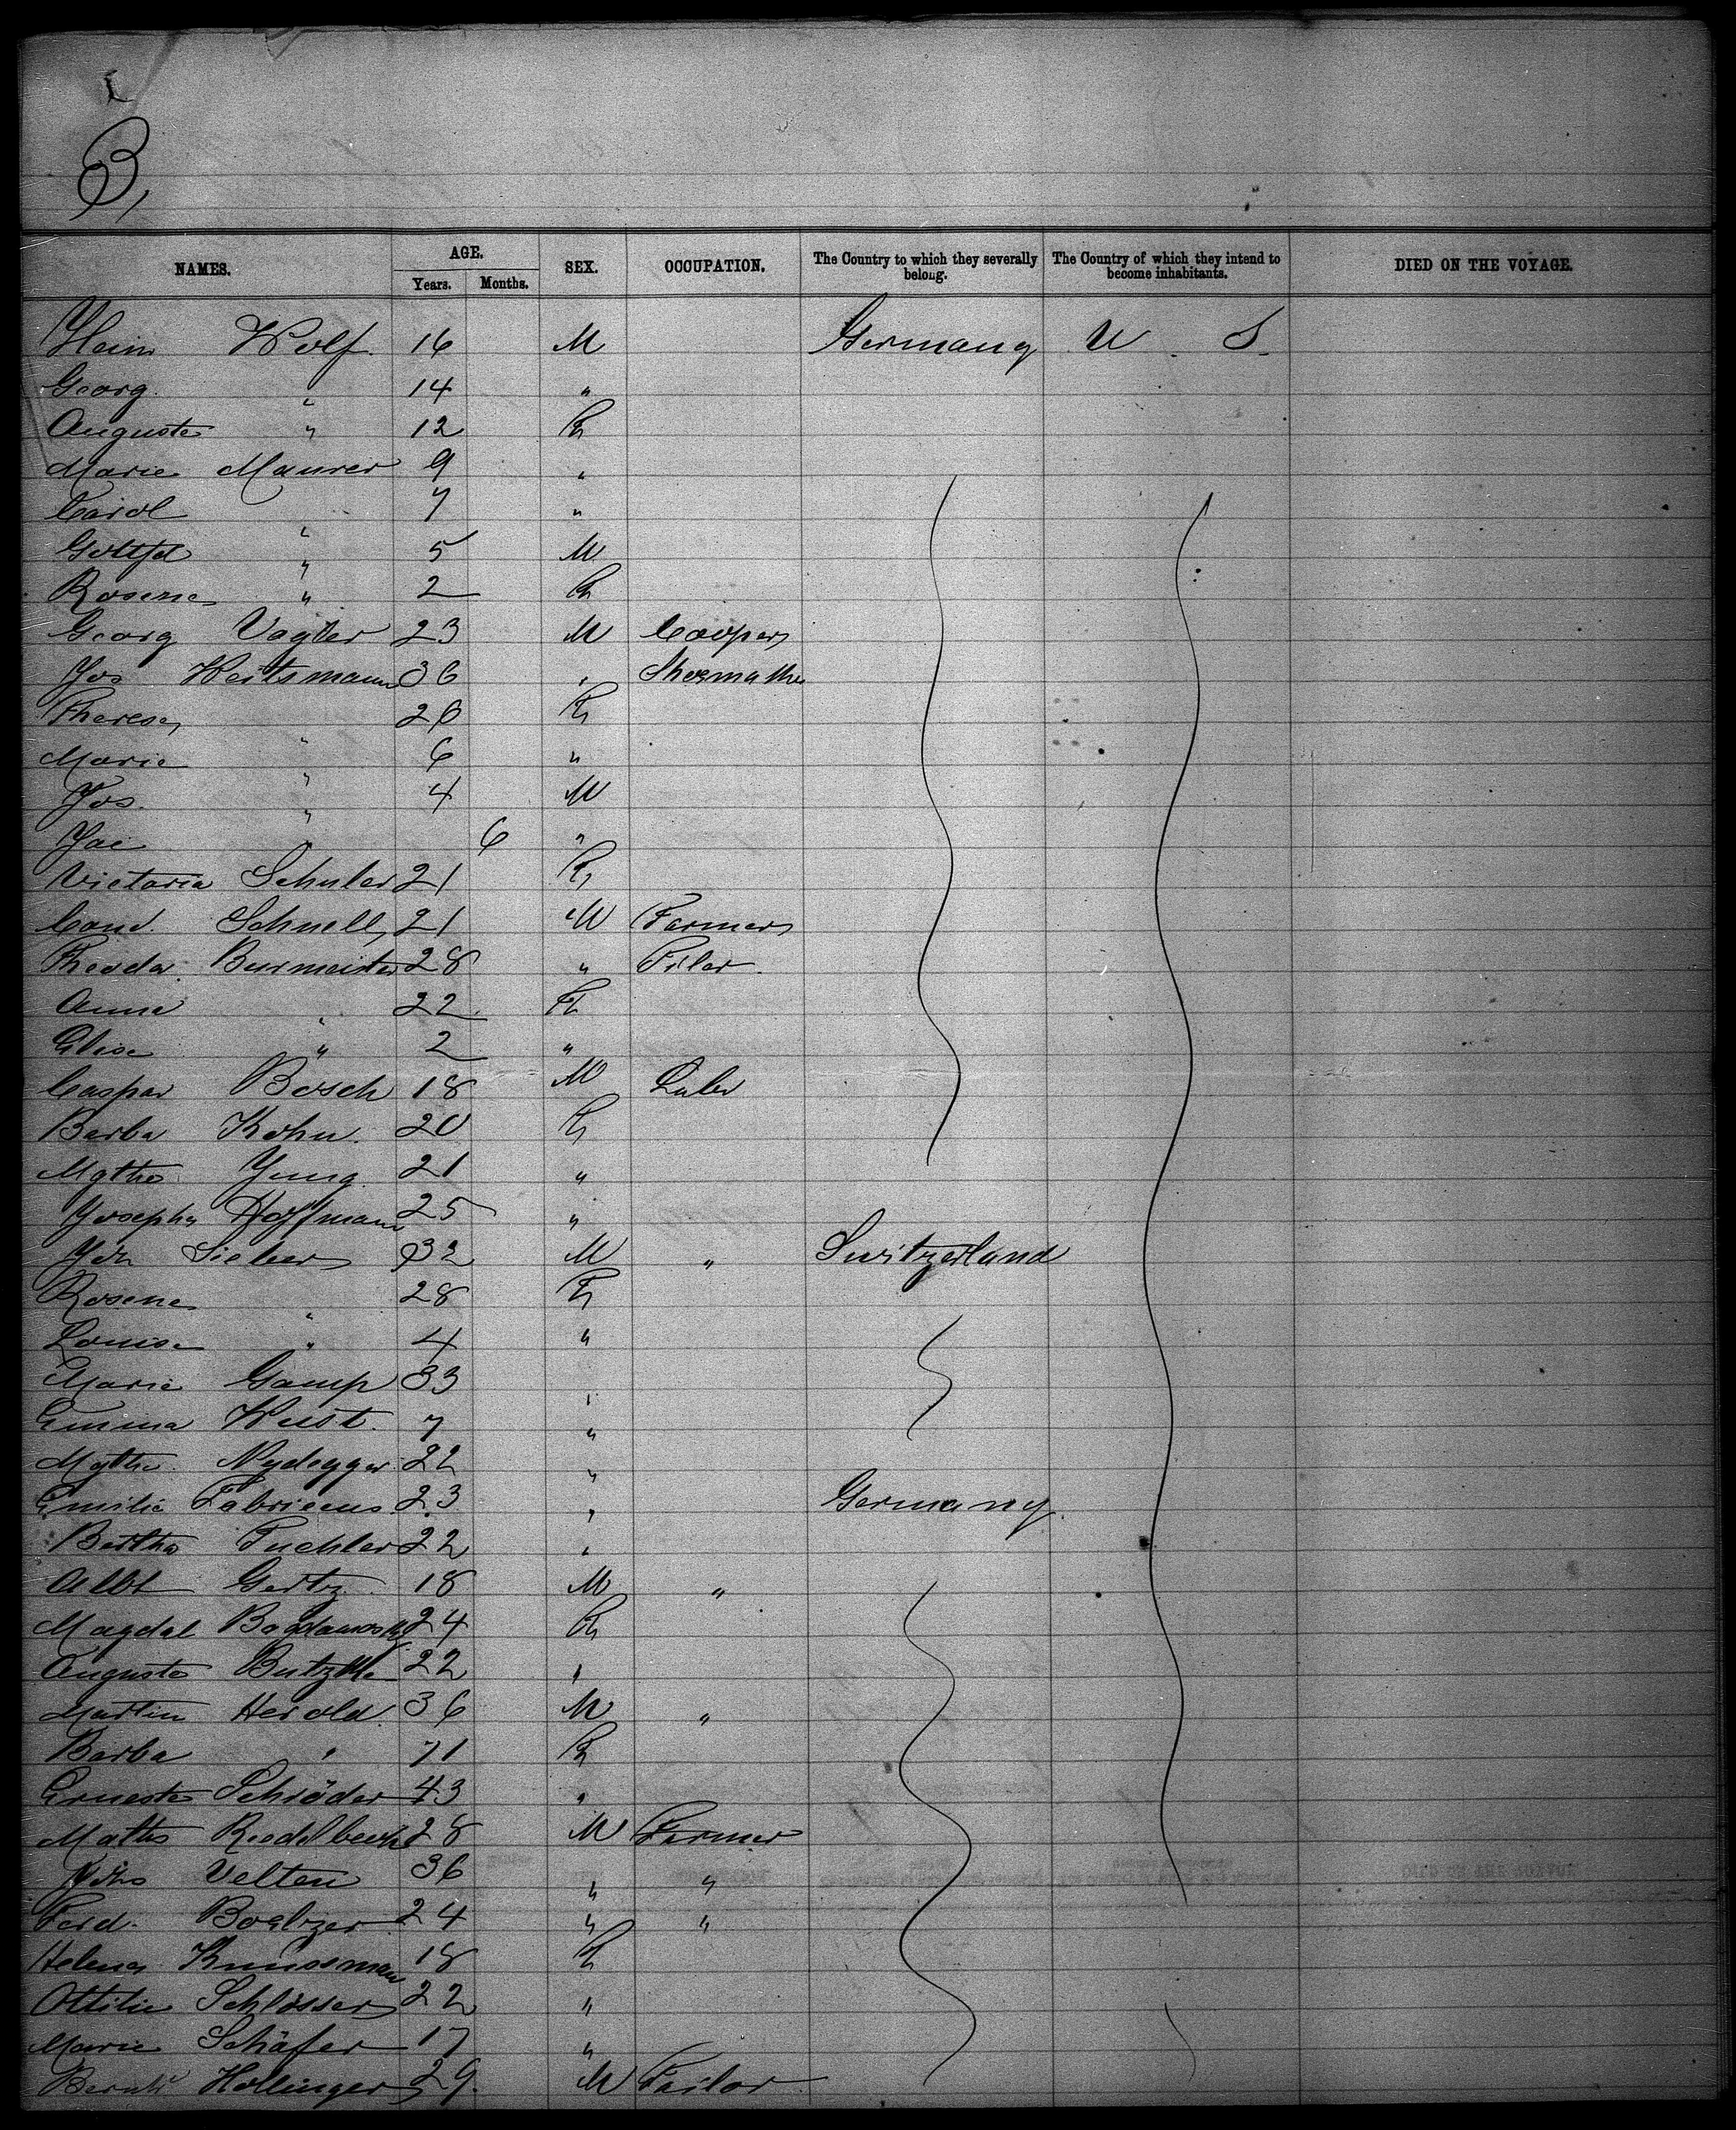 3,
NAMES. AGE. Years. Months. SEX. OCCUPATION. The Country to which they severally belong. The Country of which they intend to become inhabitants. DIED ON THE VOYAGE.
Hein Wolf. 16 M Germany U. S.
Georg. " 14 "
Auguste " 12 F
Marie Maurer 9 "
Carol " 7 "
Gottfd " 5 M
Rosene " 2 F
Georg Vogler 23 M Cooper
Jos Weitsmann 36 " Shoemaker
Therese " 26 F
Marie " 6 "
Jos. " 4 M
Jac " 6 "
Victoria Schuler 21 F
Cond. Schnell 21 M Farmer
Theodor Burmeister 28 "
Anna " 22 F
Elise " 2 "
Caspar Bosch 18 M Labr
Barba Kohn. 20 F
Mgthe Jung 21 "
Josepha Hoffmann 25 "
Joh Sieber 32 M " Switzerland
Rosene " 28 F
Louise " 4 "
Marie Gamp 33 "
Emma Wust. 7 "
Mgthe. Nydegger 22 "
Emilie Fabricius 23 " Germany.
Bertha Tuchler 22 "
Albt Gertz 18 M "
Magdal 24 F
Auguste 22 "
Martin Herold 36 M "
Barba " 71 F
Erneste Schröder 43 "
Maths 28 M Farmer
Johs Velten 36 " "
Ferd. 24 " "
Helena Knussman 18 F
Ottilie Schlösser 22 "
Marie Schäfer 17 "
Hollinger 29. M Tailor